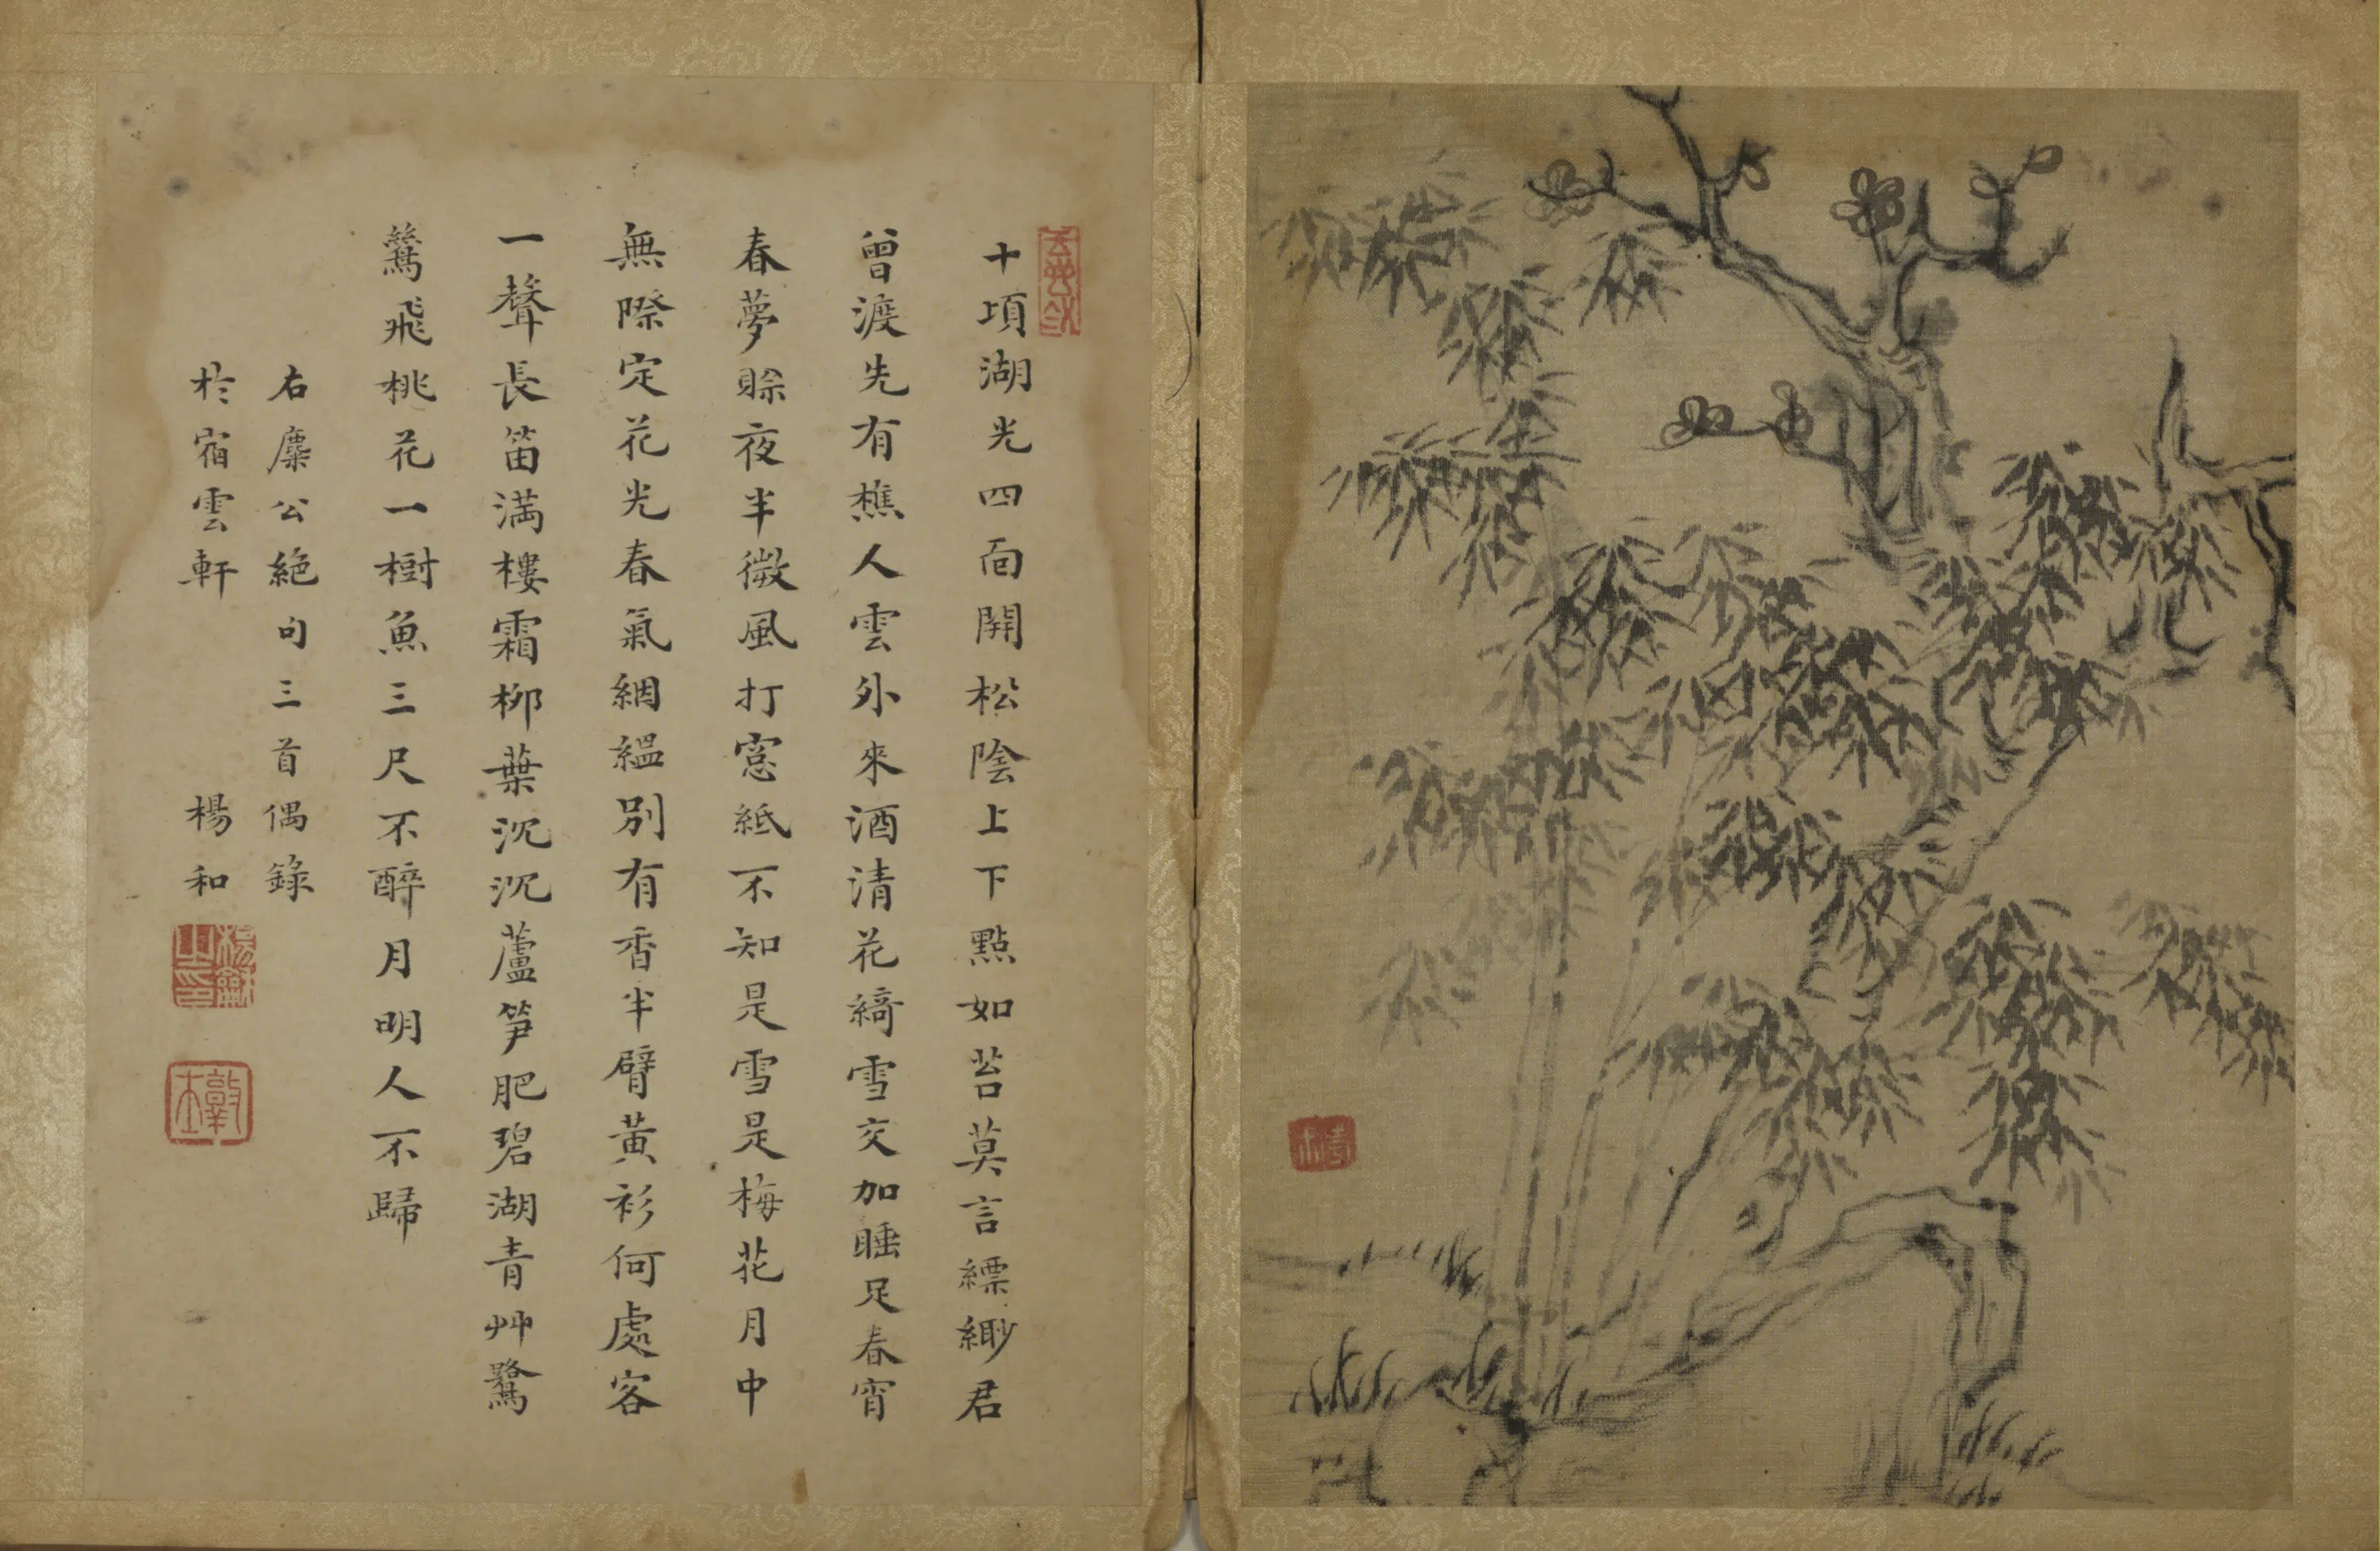 十項湖光四面開松陰上下點如苔莫言縹緲君
曾渡先有樵人雲外來酒清花綺雪交加睡足春宵
春夢賒夜半微風打窓紙不知是雪是梅花月中
無際定花光春氣絪縕別有香半臂黃衫何處客
一聲長笛滿樓霜柳葉沉沉蘆笋肥碧湖青艸鷺
鷥飛桃花一樹魚三尺不醉月明人不歸
右麋公絕句三首偶錄
於宿雲軒 楊和